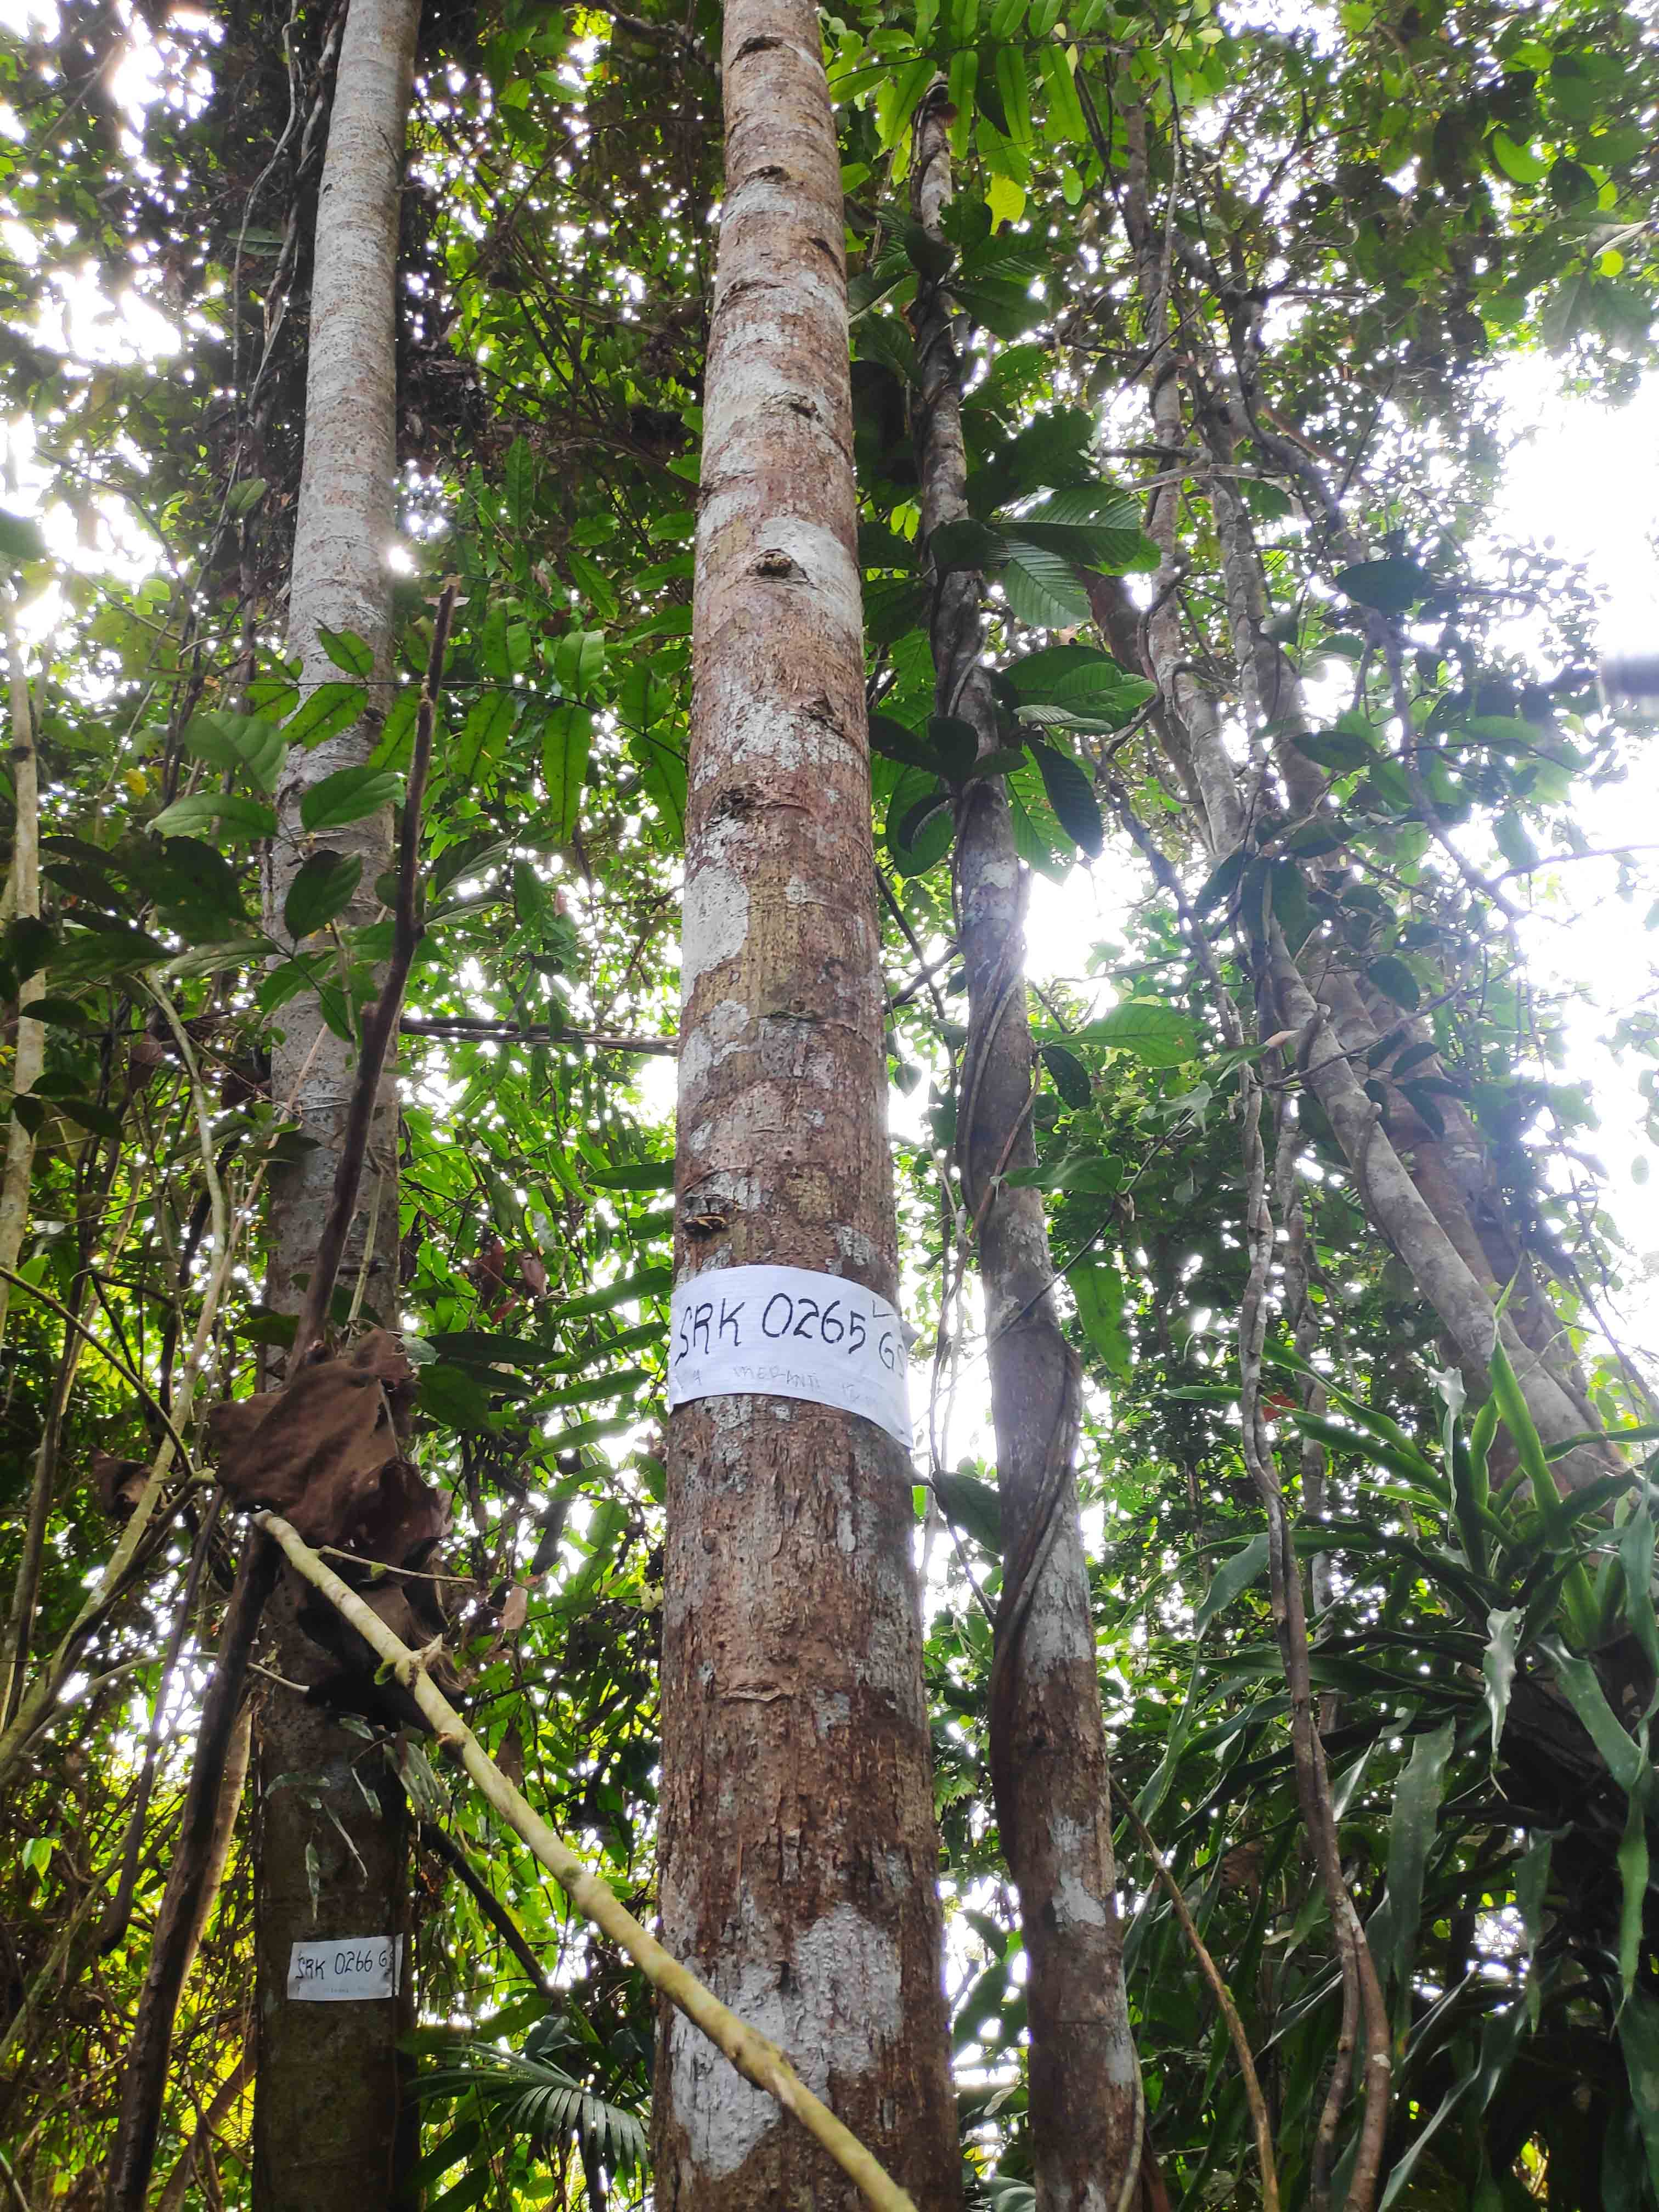 SRK 0265 GS
MERANTI
SRK 0266 GS